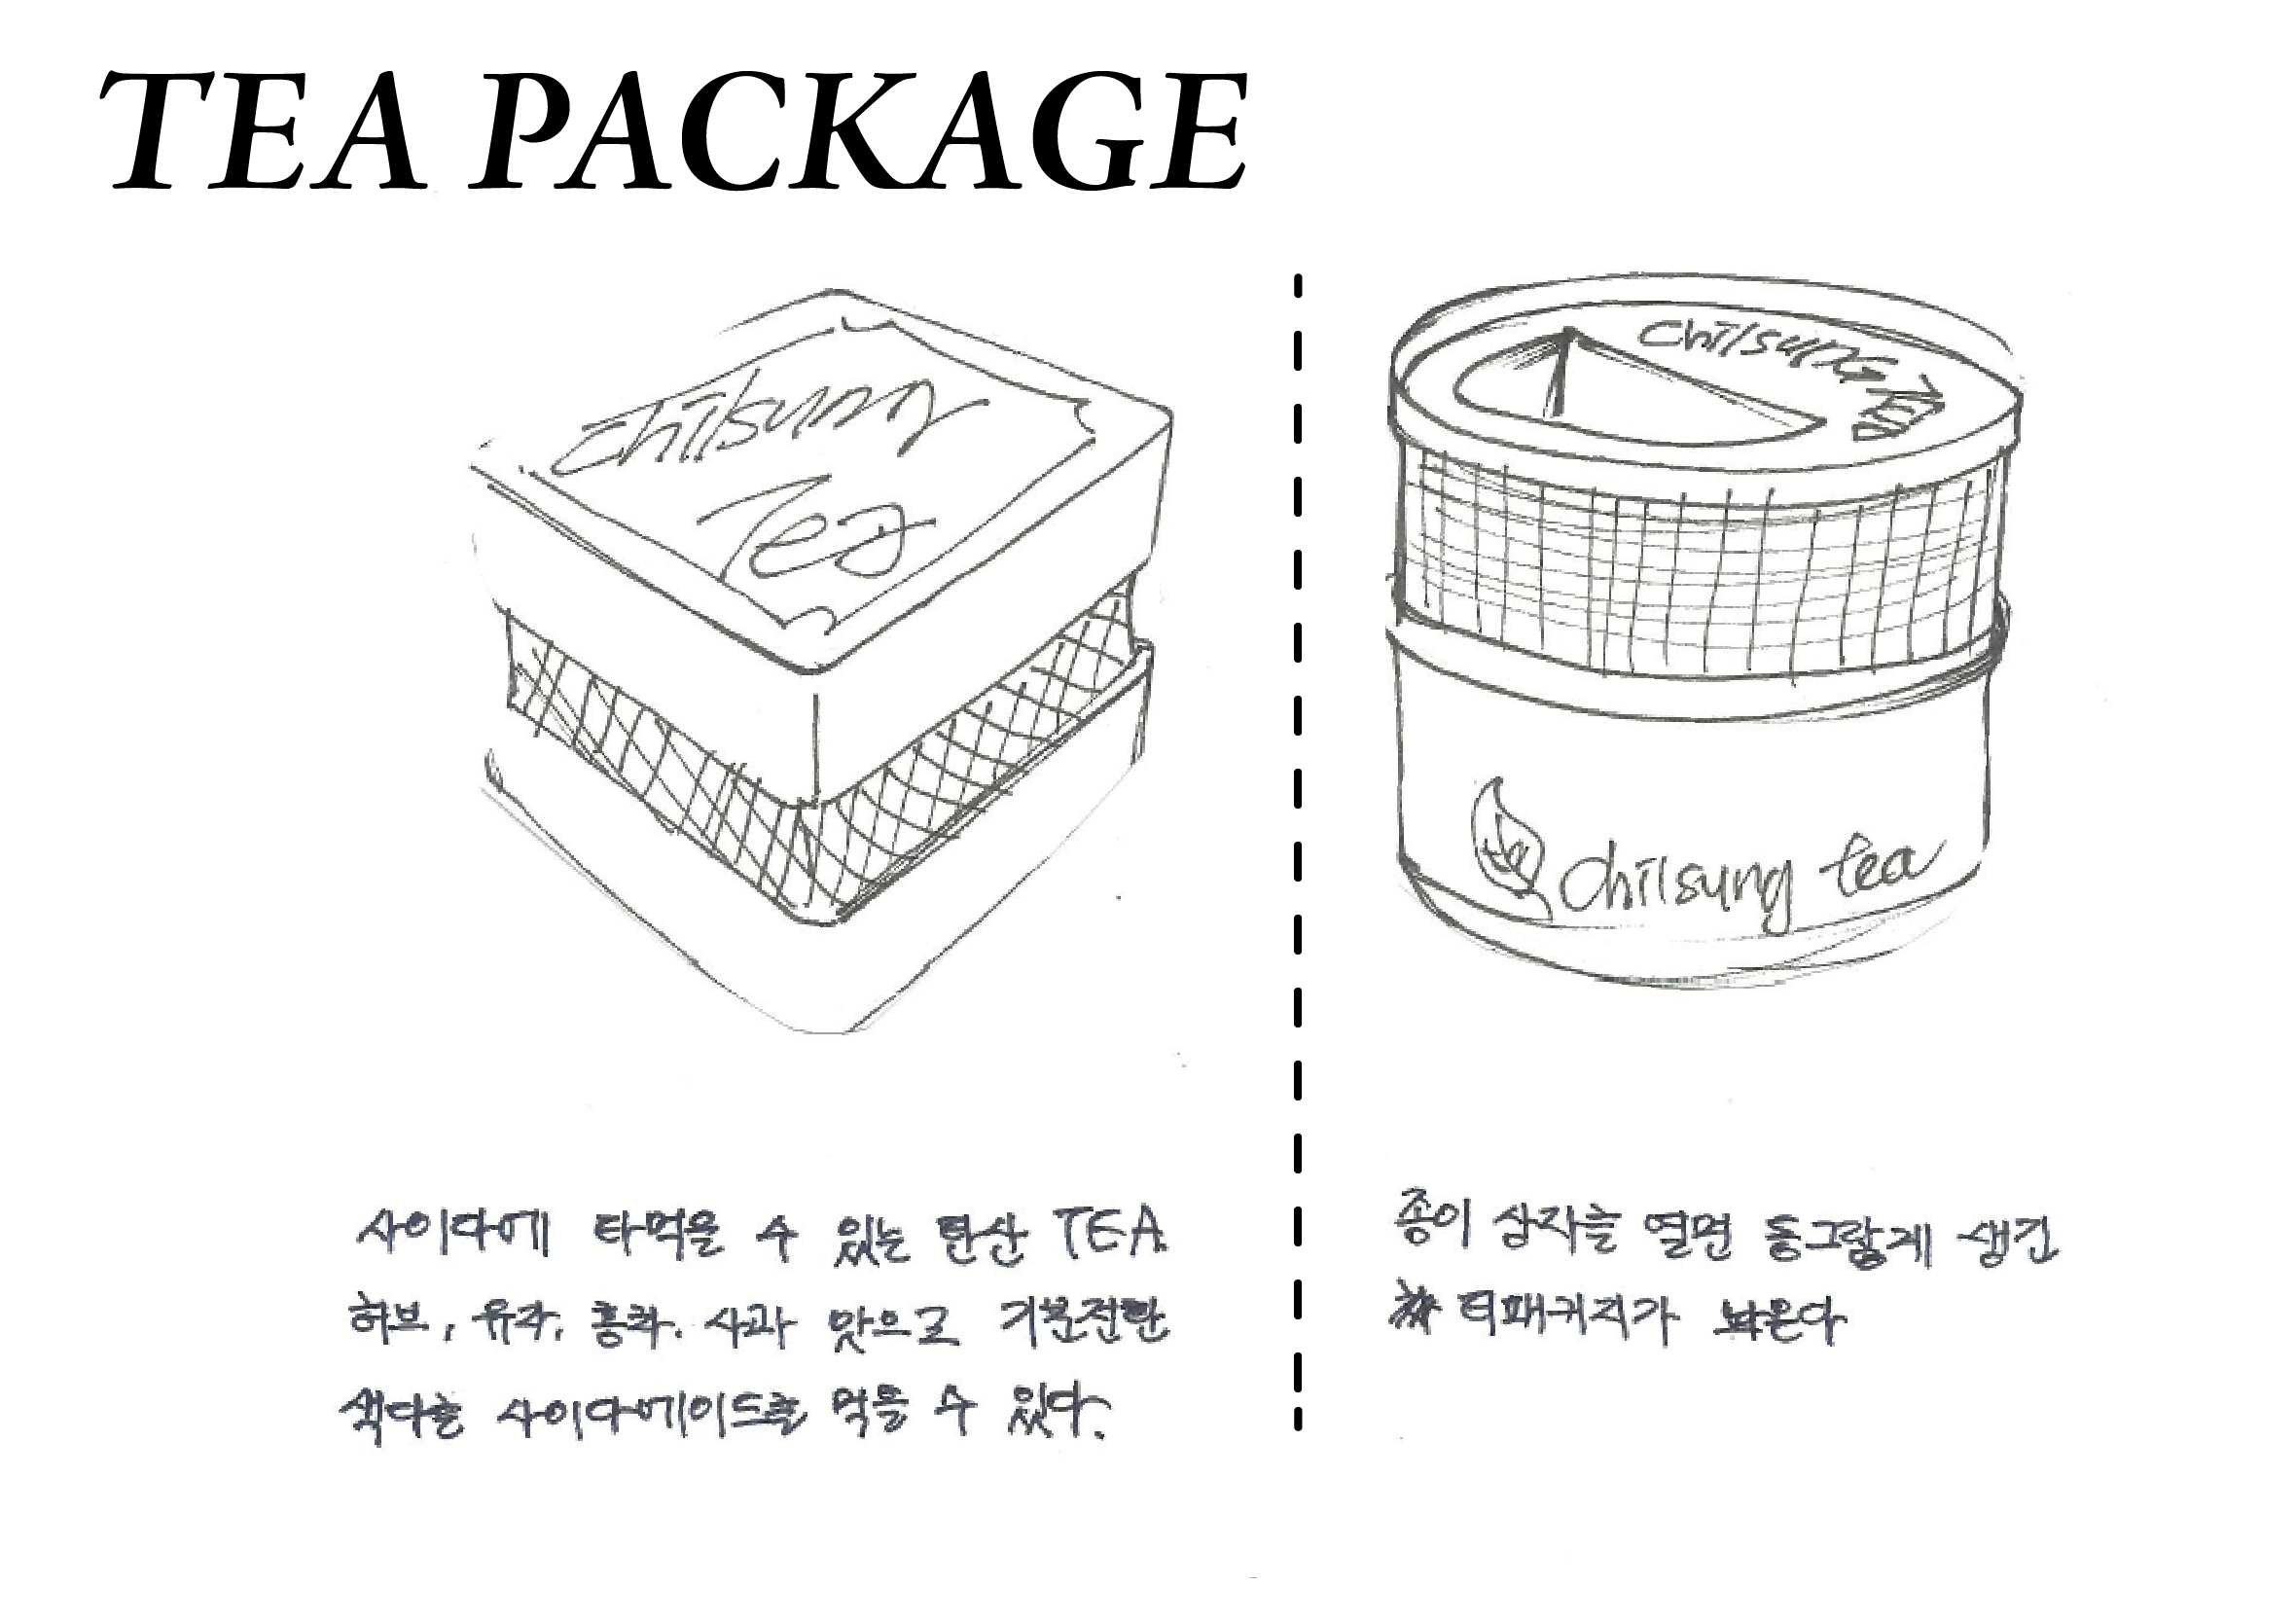 TEA PACKAGE
Chilsung
Tea
사이다에 타먹을 수 있는 탄산 TEA
허브, 유자, 홍차, 사과 맛으로 기분전환
색다른 사이다에이드를 먹을 수 있다.
Chilsung TEA
chilsung tea
종이 상자를 열면 동그랗게 생긴
티패키지가 놔온다